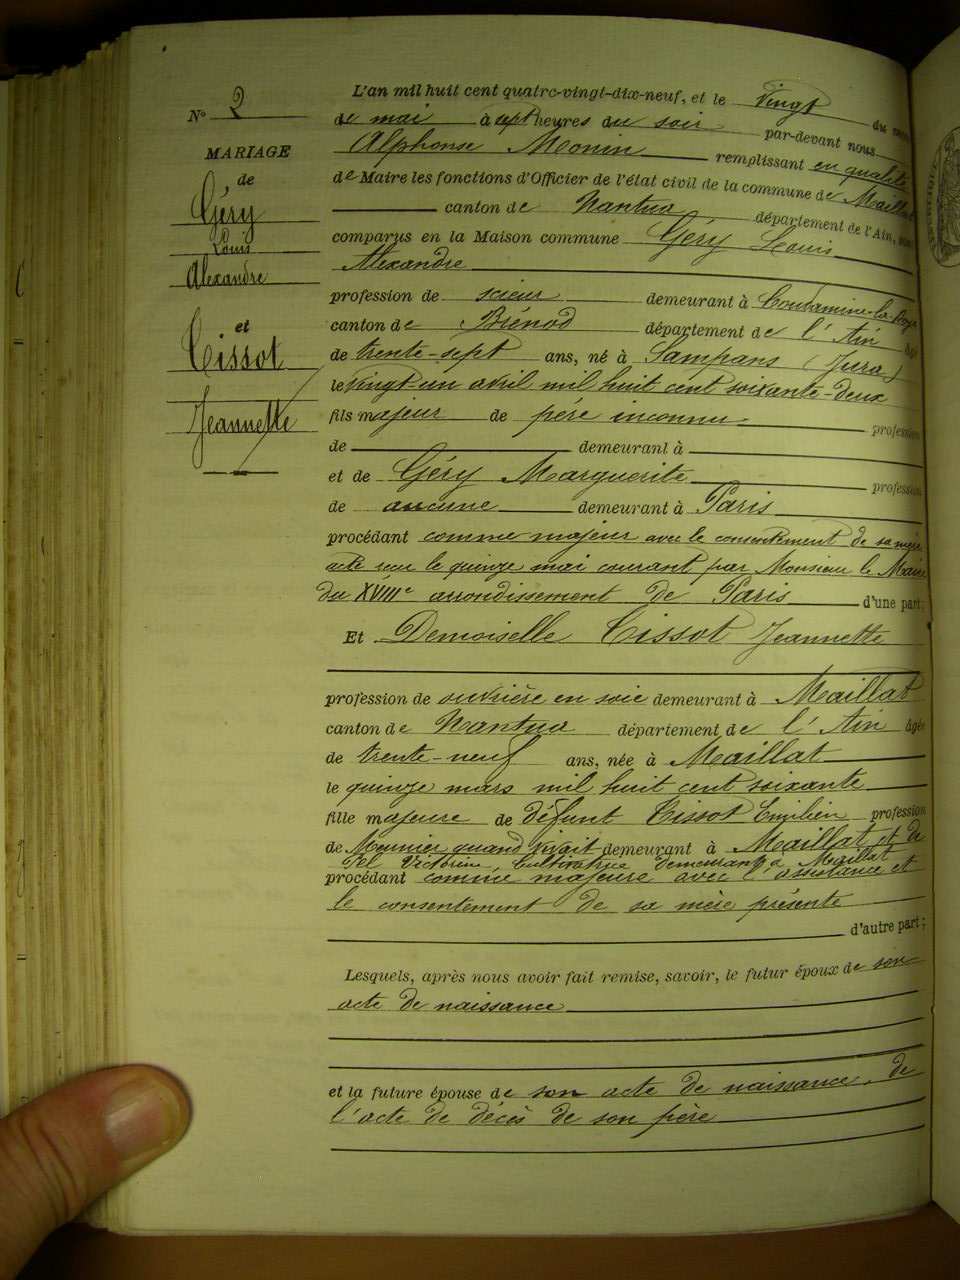 N° 2
MARIAGE
de
Géry
Louis
Alexandre
et
Tissot
Jeannette
L'an mil huit cent quatre-vingt-dix-neuf, et le vingt du mois
de mai à sept heures du soir par-devant nous
Alphonse Monin remplissant en qualité
de Maire les fonctions d'Officier de l'état civil de la commune de Maillat
canton de Nantua département de l'Ain, sont
comparus en la Maison commune Géry Louis
Alexandre
profession de scieur demeurant à Condamine-la-Doye
canton de Brénod département de l'Ain âgé
de trente-sept ans, né à Sampans (Jura)
le vingt un avril mil huit cent soixante-deux
fils majeur de père inconnu profession
de demeurant à
et de Géry Marguerite profession
de aucune demeurant à Paris
procédant comme majeur avec le consentement de sa mère
acte reçu le quinze mai courant par Monsieur le Maire
du XVIIIe arrondissement de Paris d'une part;
Et Demoiselle Tissot Jeannette
profession de ouvrière en soie demeurant à Maillat
canton de Nantua département de l'Ain âgée
de trente-neuf ans, née à Maillat
le quinze mars mil huit cent soixante
fille majeure de défunt Tissot Emilien profession
de Meunier quand vivait demeurant à Maillat et de
Victorine, Cultivatrice demeurant à Maillat
procédant comme majeure avec l'assistance et
le consentement de sa mère présente
d'autre part;
Lesquels, après nous avoir fait remise, savoir, le futur époux de son
acte de naissance
et la future épouse de son acte de naissance, de
l'acte de décès de son père